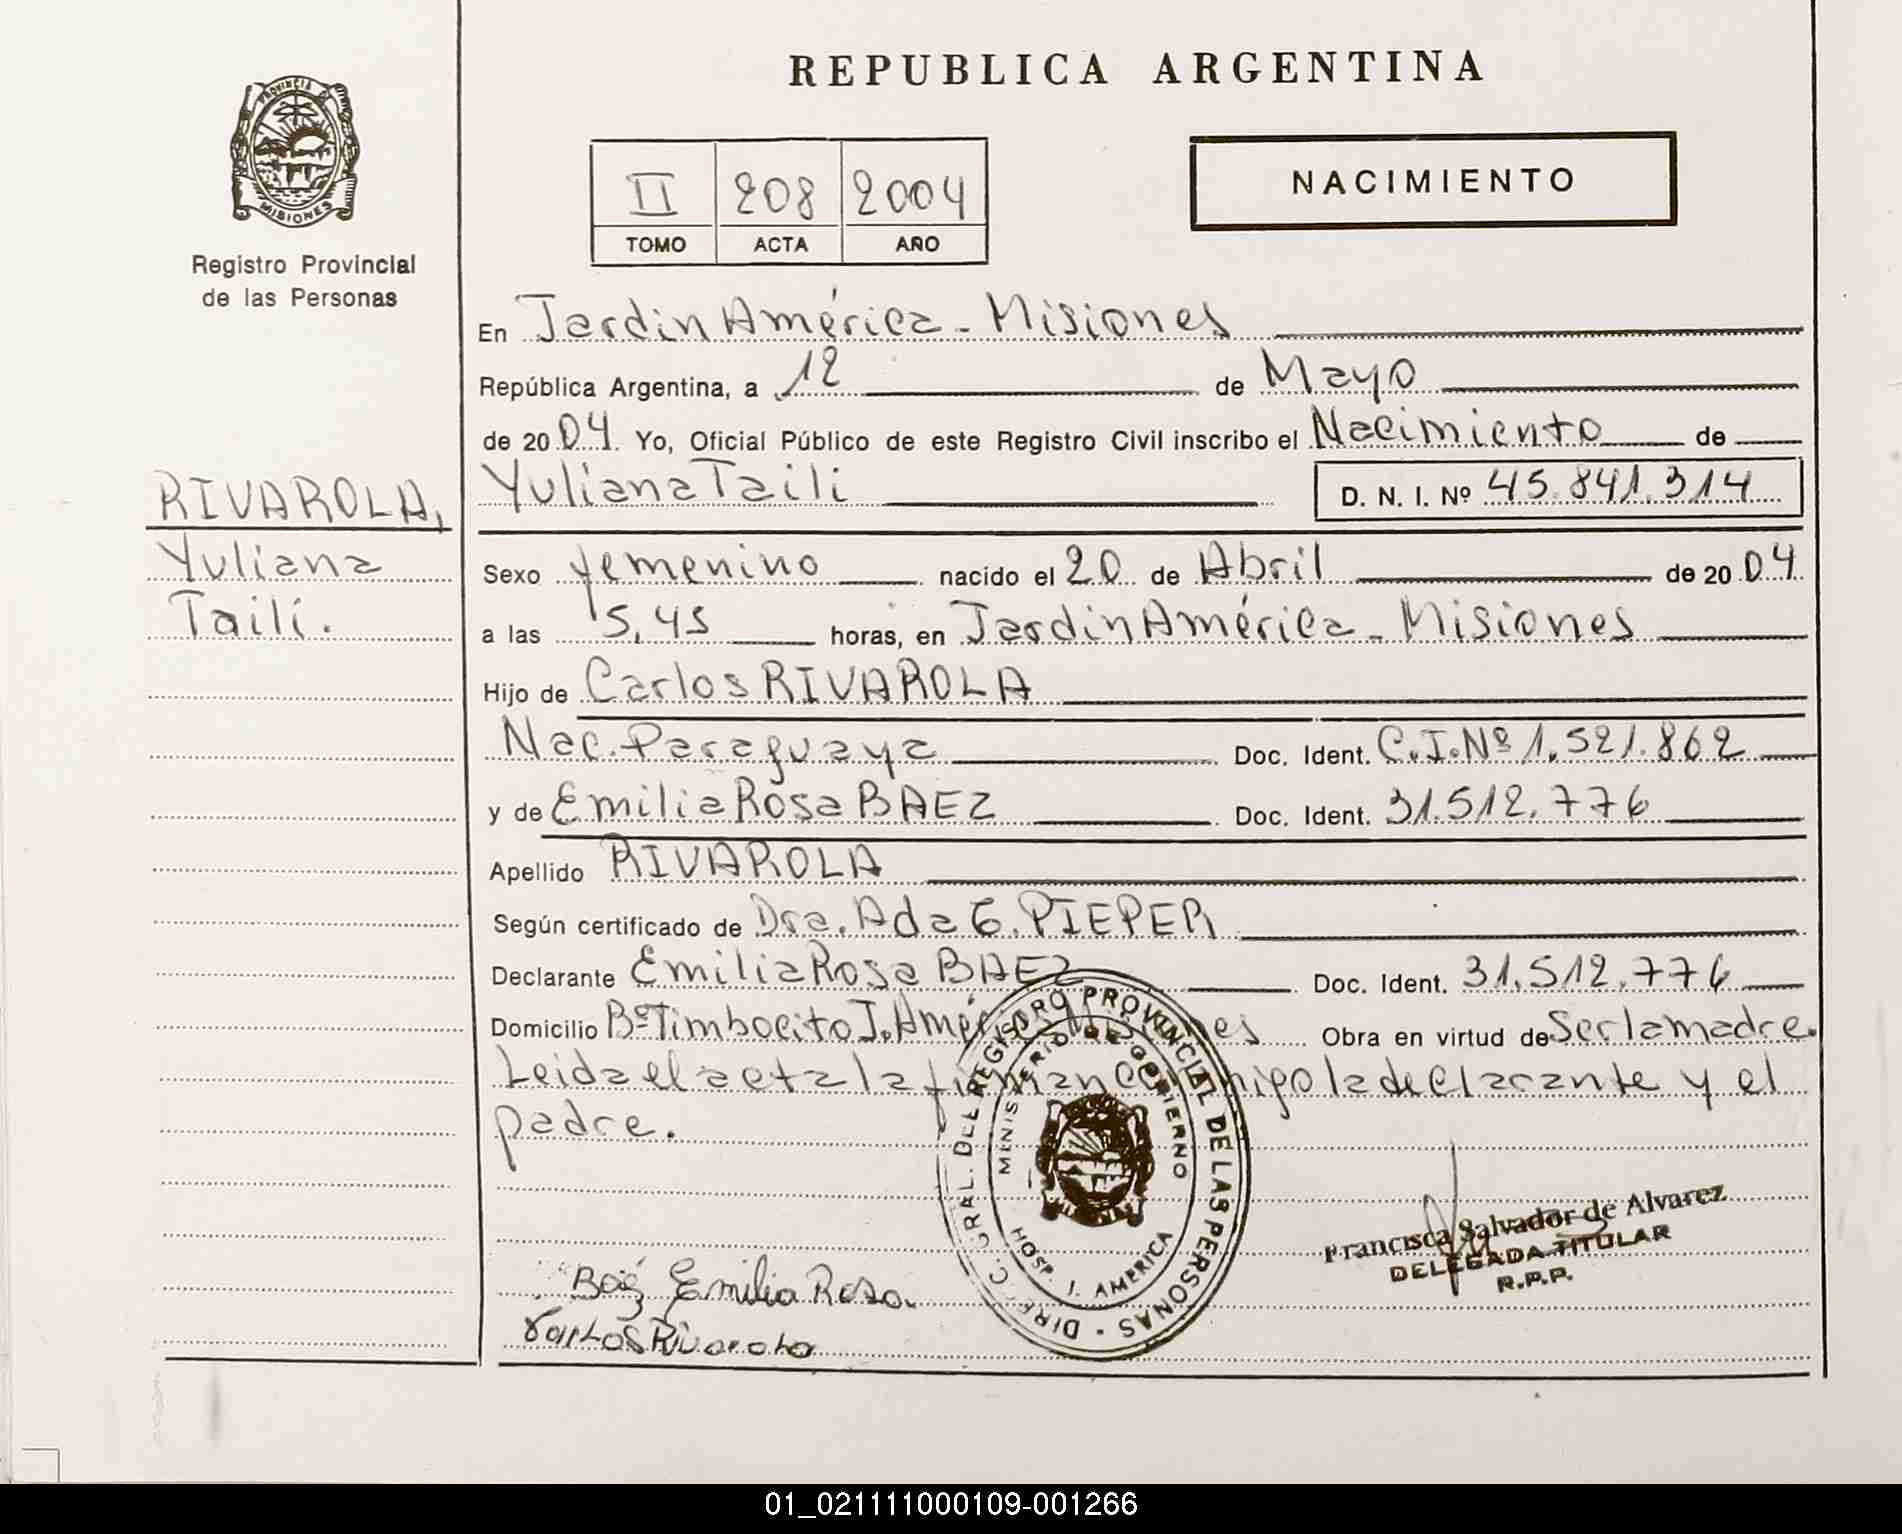 PROVINCIA DE
MISIONES
Registro Provincial
de las Personas
RIVAROLA,
Yuliana
Tailí.
REPUBLICA ARGENTINA
II 208 2004
TOMO ACTA AÑO
NACIMIENTO
En Jardin América - Misiones
República Argentina, a 12 de Mayo
de 2004. Yo, Oficial Público de este Registro Civil inscribo el Nacimiento de
Yuliana Taili D. N. I. Nº 45.841.314
Sexo femenino nacido el 20 de Abril de 2004
a las 15,45 horas, en Jardin América - Misiones
Hijo de Carlos RIVAROLA
Nac. Paraguaya Doc. Ident. C.I.Nº 1.521.862
y de Emilia Rosa BAEZ Doc. Ident. 31.512.776
Apellido RIVAROLA
Según certificado de Dra. Ada G. PIEPER
Declarante Emilia Rosa BAEZ Doc. Ident. 31.512.776
Domicilio Bº Timbocito J. América Misiones Obra en virtud de Ser la madre.
Leida el acta la firman conmigo la declarante y el
padre.
DIREC. GRAL. DEL REGISTRO PROVINCIAL DE LAS PERSONAS
MINISTERIO DE GOBIERNO
HOSP. J. AMERICA
Francisca Salvador de Alvarez
DELEGADA TITULAR
R.P.P.
Baéz Emilia Rosa
Carlos Rivarola
01_021111000109-001266